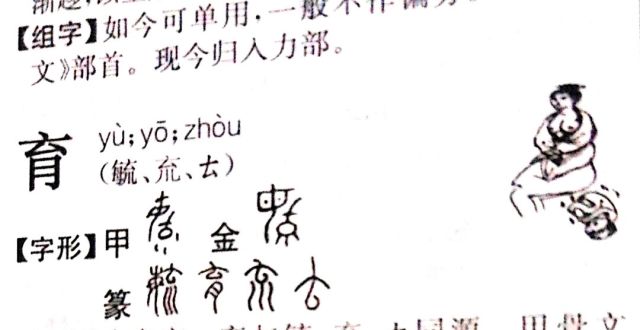 【组字】如今可单用，一般不作偏旁
文》部首。现今归入力部。
育 yù; yō; zhòu
(毓、㐬、𠫓)
【字形】甲 金
篆
同源 甲骨文